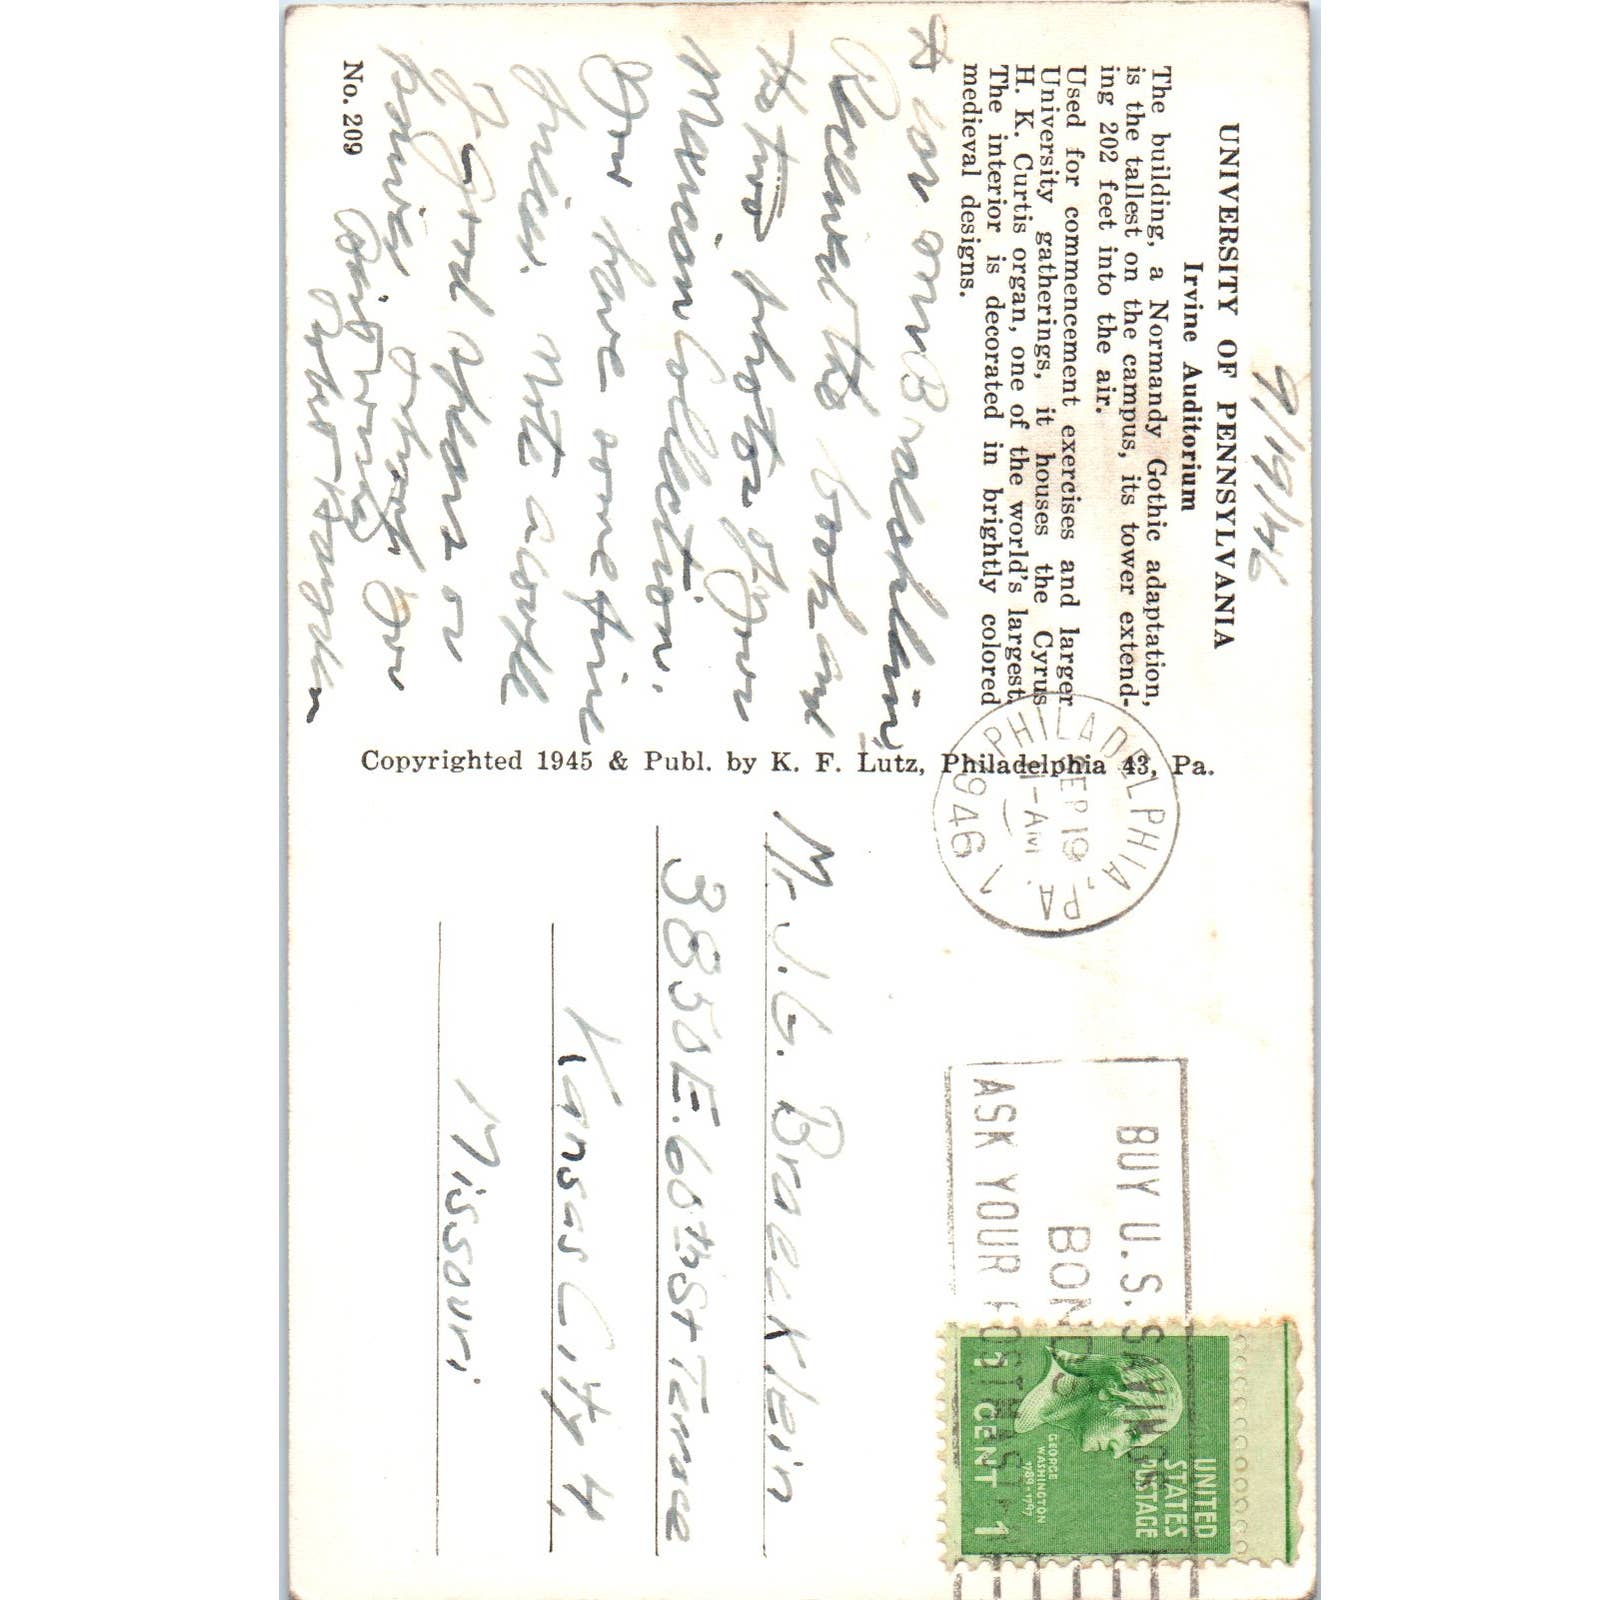 9/19/46
UNIVERSITY OF PENNSYLVANIA
Irvine Auditorium
The building, a Normandy Gothic adaptation,
is the tallest on the campus, its tower extend-
ing 202 feet into the air.
Used for commencement exercises and larger
University gatherings, it houses the Cyrus
H. K. Curtis organ, one of the world's largest.
The interior is decorated in brightly colored
medieval designs.
Braecklein,
Received the book and
the two photos of your
Mexican Collection.
You have some fine
pieces. Note a couple
of good spears on
ponies. for
No. 209
Copyrighted 1945 & Publ. by K. F. Lutz, Philadelphia 43, Pa.
PHILADELPHIA, PA. 1
SEP 19
11-AM
1946
BUY U.S. SAVINGS
BONDS
ASK YOUR POSTMASTER
UNITED
STATES
POSTAGE
GEORGE
WASHINGTON
1789-1797
1 CENT 1
Mr J. G. Braecklein
3850 E. 60th St Terrace
Kansas City 4,
Missouri